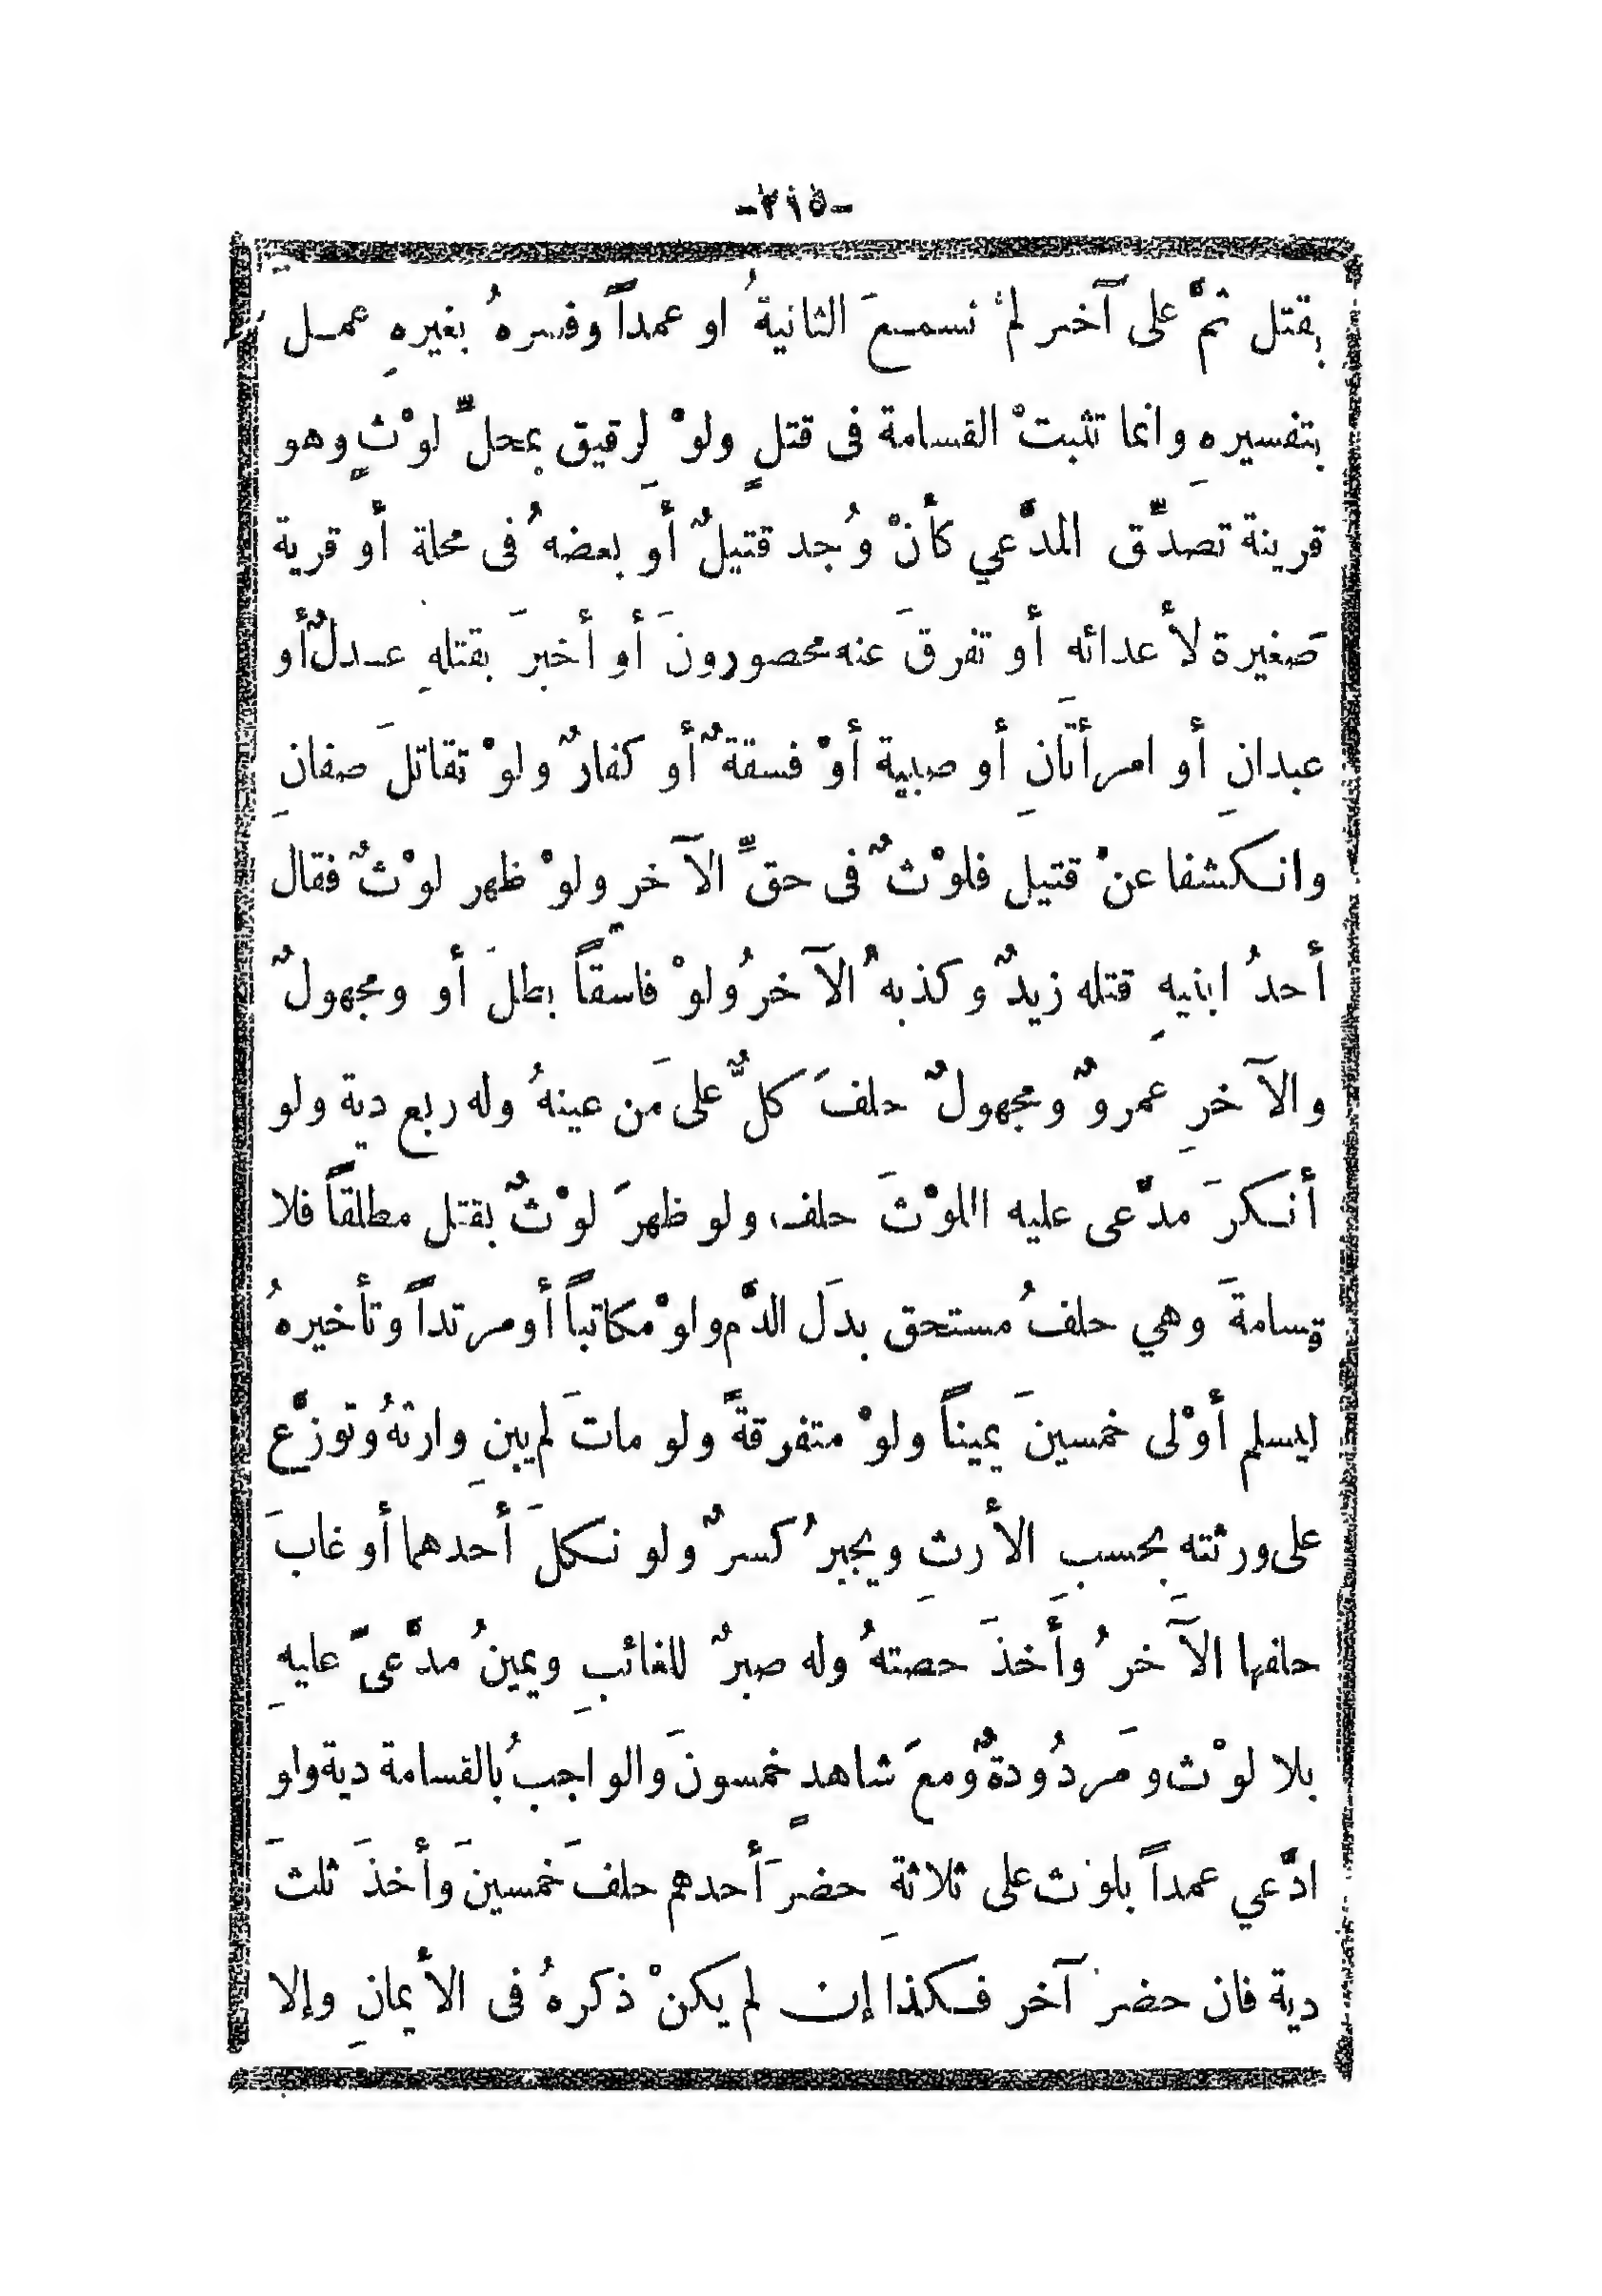 -٣١٥-
بقتل ثمَّ على آخر لمْ تسمـعَ الثانيةُ او عمداً وفسرهُ بغيرهِ عمـل
بتفسيرهِ وانما تثبتْ القسامة فى قتلٍ ولوْ لِرقيق بمحلِّ لوْثٍ وهو
قرينة تصدِّق المدَّعي كأنْ وُجد قتيلٌ أو بعضهُ فى محلة أو قرية
صَغيرة لأعدائه أو تفرقَ عنه محصورونَ أو أخبرَ بقتلهِ عـدلٌ أو
عبدانِ أو امرأتَانِ أو صبية أوْ فسقةٌ أو كفارٌ ولوْ تقاتلَ صفانِ
وانـكشفا عنْ قتيل فلوْثٌ فى حقِّ الآخرِ ولوْ ظهر لوْثٌ فقال
أحدُ ابنيهِ قتله زيدٌ وكذبهُ الآخرُ ولوْ فاسقاً بطلَ أو ومجهولٌ
والآخرِ عمروٌ ومجهولٌ حلفَ كلٌّ على مَن عينهُ وله ربع دية ولو
أنـكرَ مدَّعى عليه اللوْثَ حلف، ولو ظهرَ لوْثٌ بقتل مطلقاً فلا
قسامةَ وهي حلفُ مستحق بدلَ الدَّم ولوْ مكاتباً أو مرتداً وتأخيرهُ
ليسلم أوْلى خمسينَ يميناً ولوْ متفرقةً ولو ماتَ لم يبنِ وارثهُ وتوزَّع
على ورثته بحسبِ الأرثِ ويجبرُ كسرٌ ولو نـكلَ أحدهما أو غابَ
حلفها الآخرُ وأَخذَ حصتهُ وله صبرٌ للغائبِ ويمينُ مدَّعىً عليهِ
بلا لوْث ومَردُودةٌ ومعَ شاهدٍ خمسونَ والواجبُ بالقسامة دية ولو
ادَّعي عمداً بلوْث على ثلاثةِ حضرَ أحدهم حلفَ خمسينَ وأخذَ ثلثَ
دية فان حضرَ آخر فـكذا إن لم يكنْ ذكرهُ فى الأيمانِ وإلا